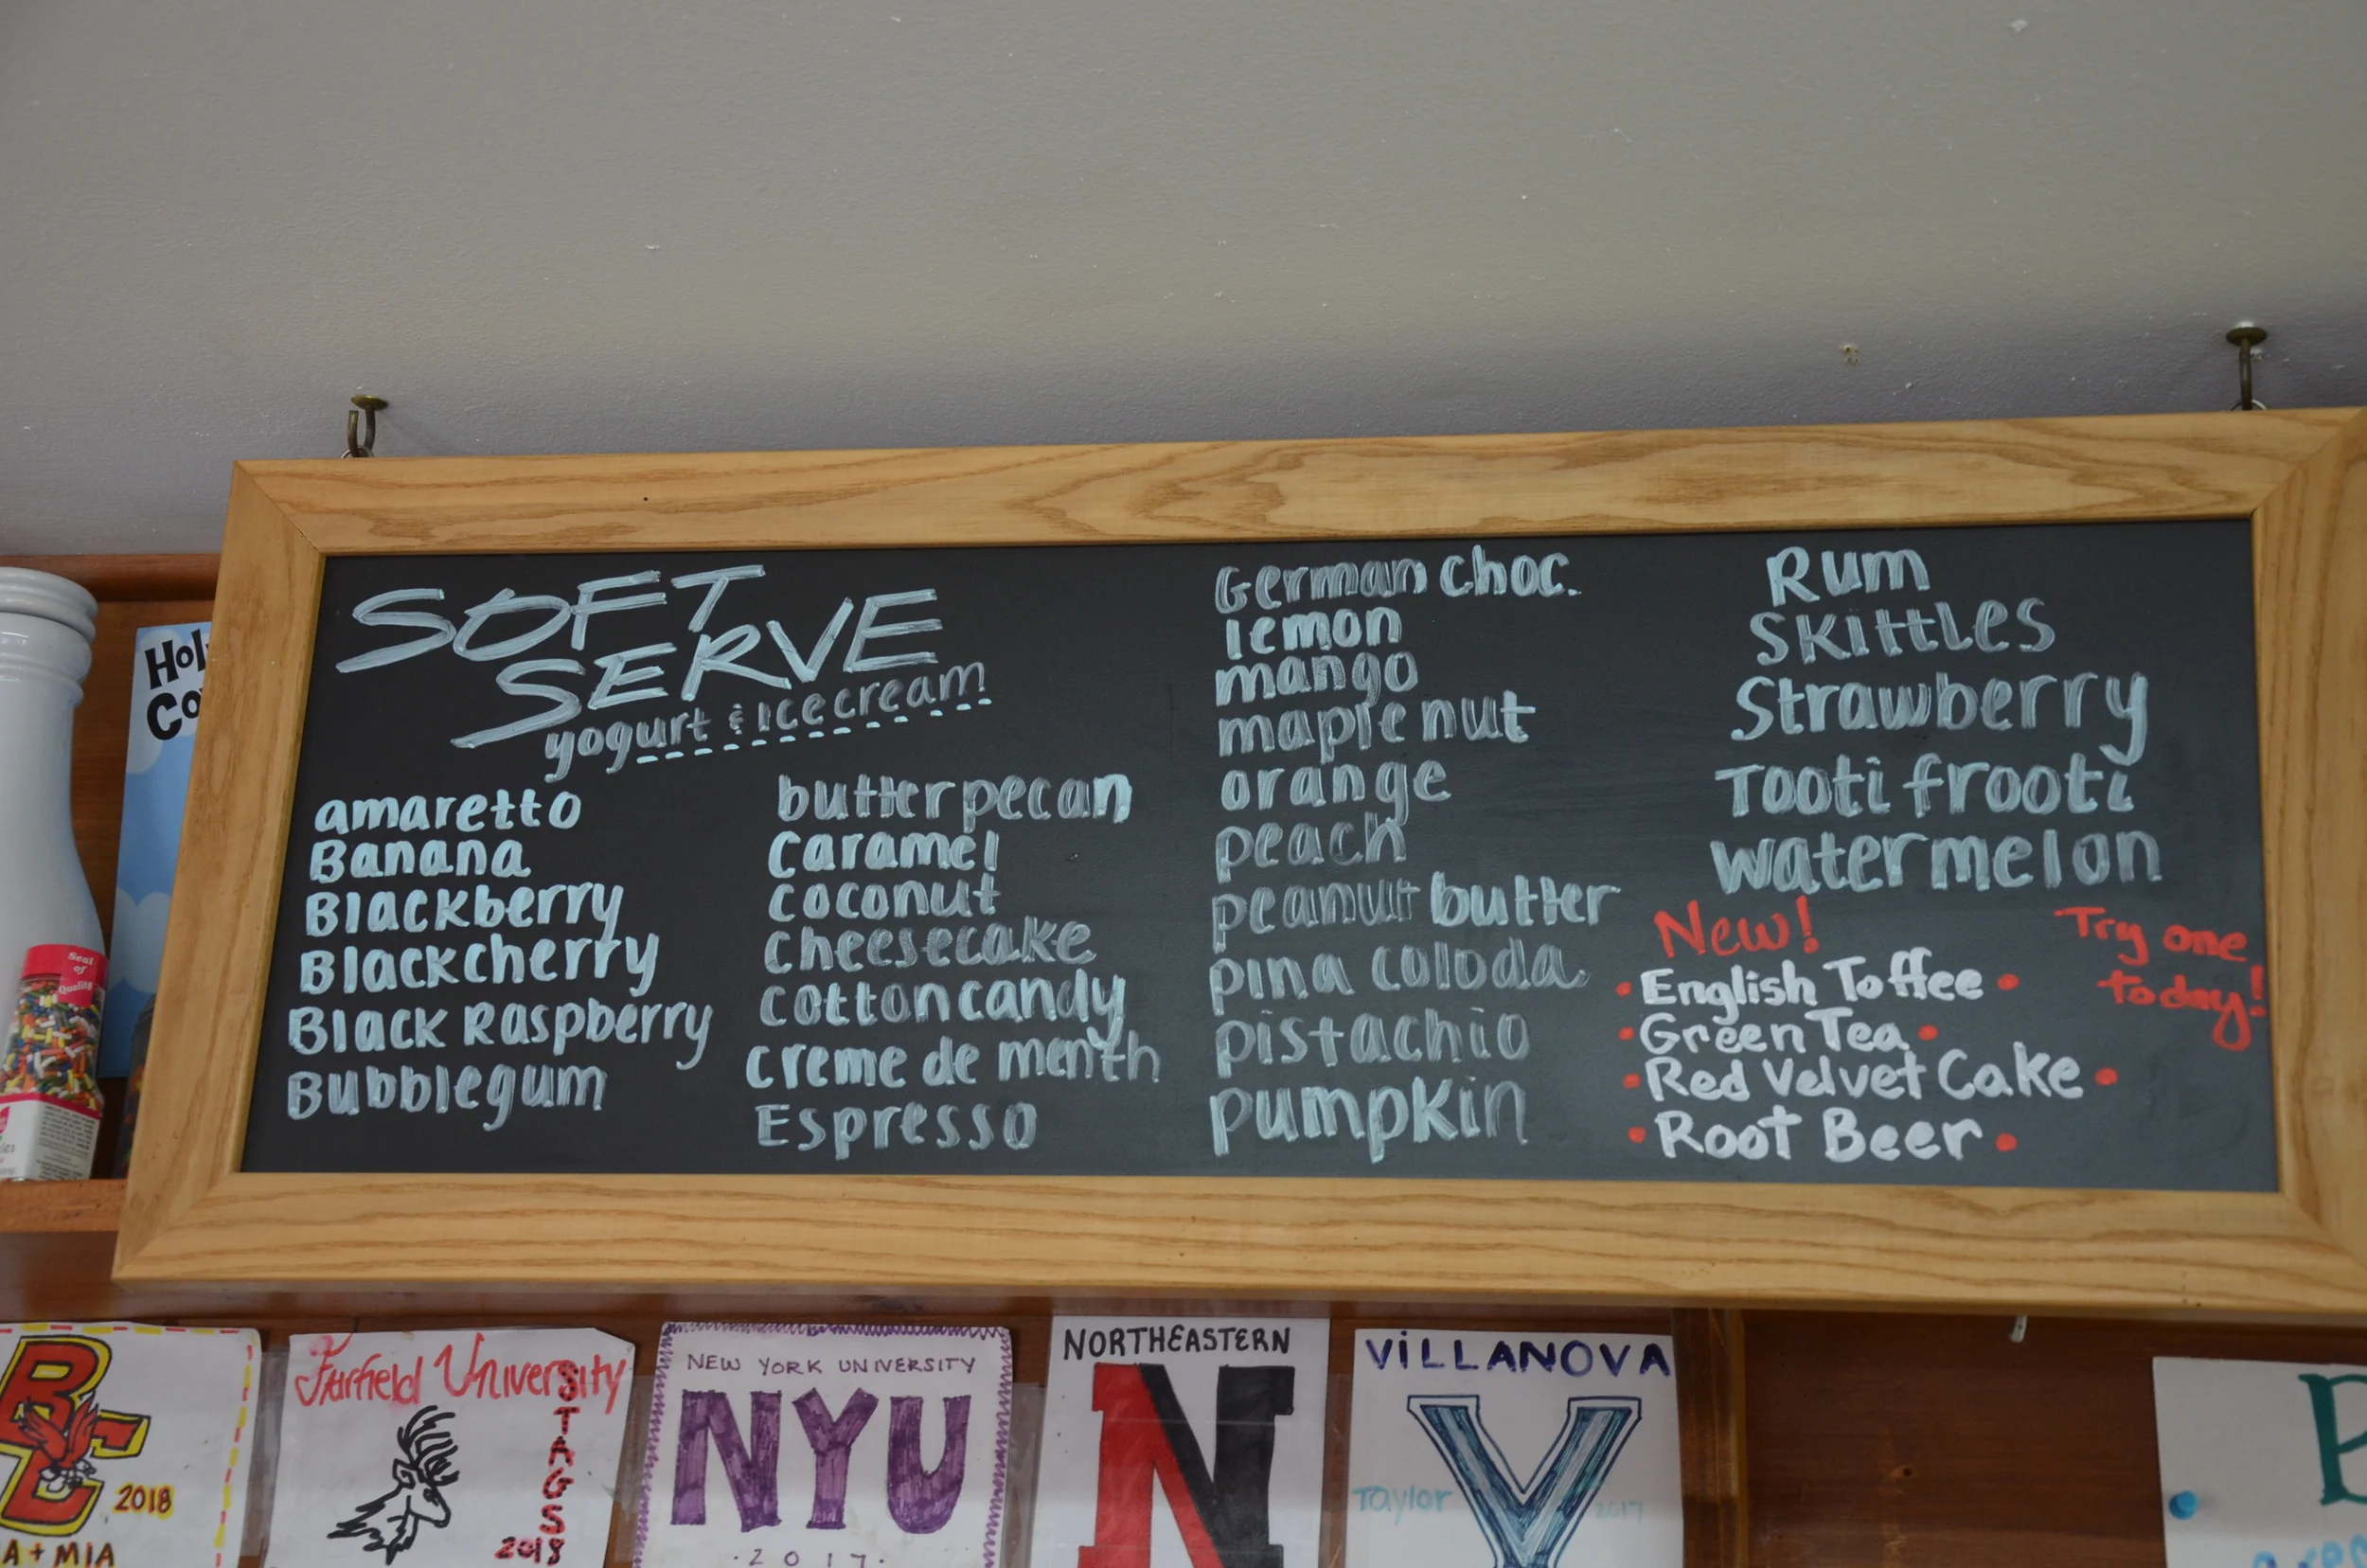 SOFT
SERVE
yogurt & icecream
amaretto
Banana
Blackberry
Blackcherry
Black Raspberry
Bubblegum
butter pecan
Caramel
coconut
cheesecake
cotton candy
creme de menth
Espresso
German choc.
lemon
mango
maple nut
orange
peach
peanut butter
pina coloda
pistachio
pumpkin
Rum
Skittles
Strawberry
Tooti frooti
watermelon
New!
Try one
today!
• English Toffee •
• Green Tea •
• Red Velvet Cake •
• Root Beer •
Seal
of
Quality
BC
2018
A + MIA
Fairfield University
STAGS
2018
NEW YORK UNIVERSITY
NYU
· 2017 ·
NORTHEASTERN
N
ViLLANOVA
V
Taylor
2017